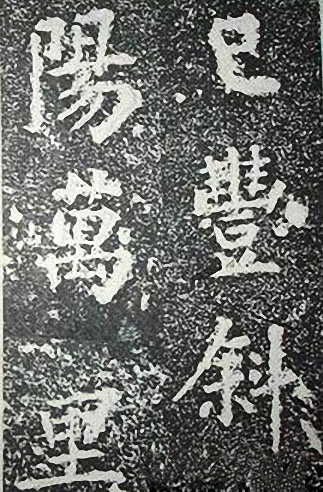 已豐斜
陽萬里